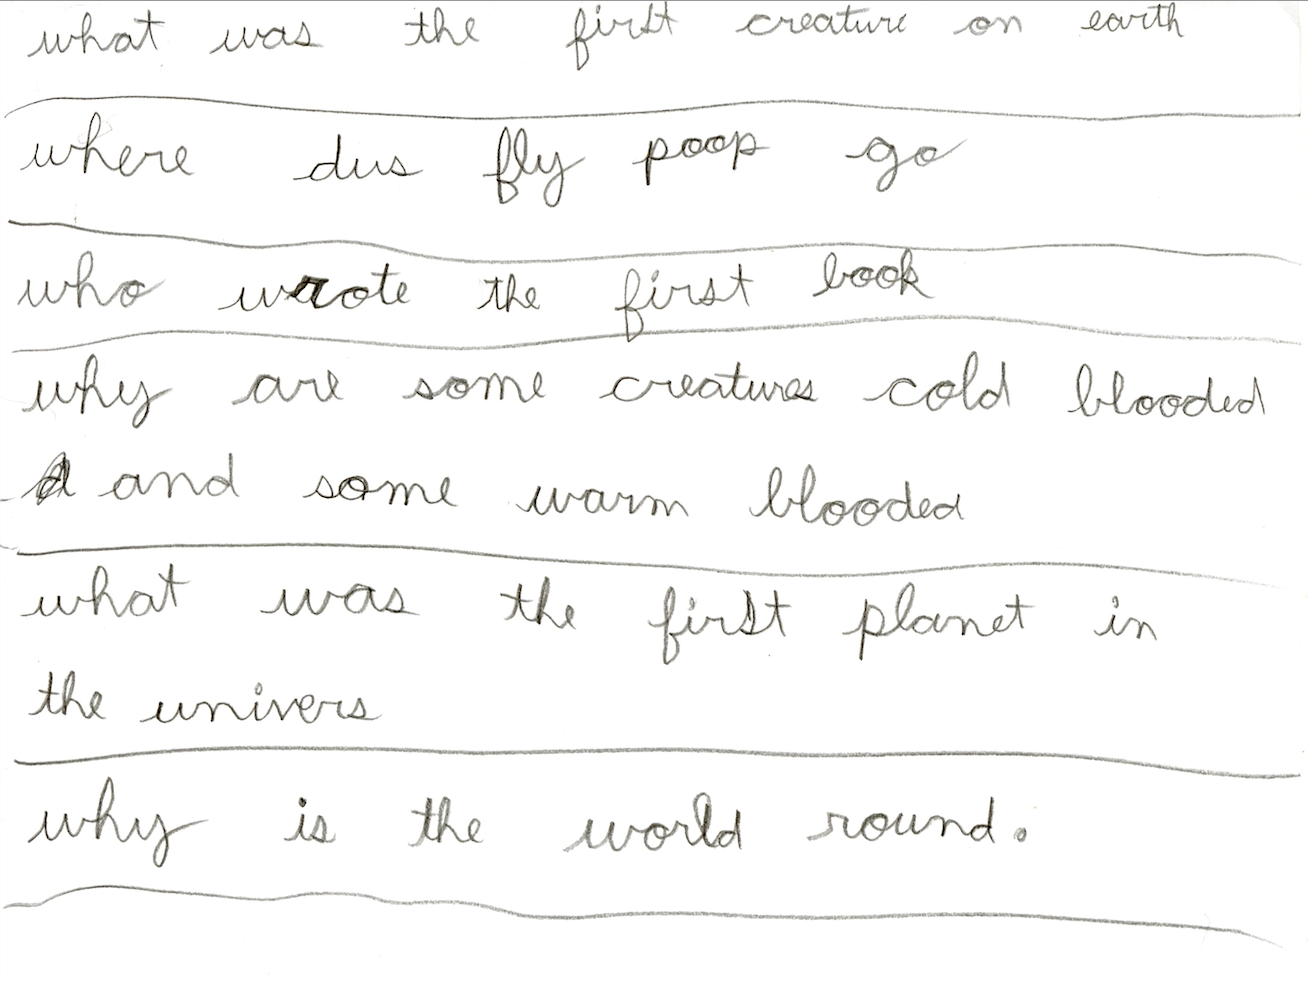 what was the first creature on earth
where dus fly poop go
who wrote the first book
why are some creatures cold blooded
and some warm blooded
what was the first planet in
the univers
why is the world round.